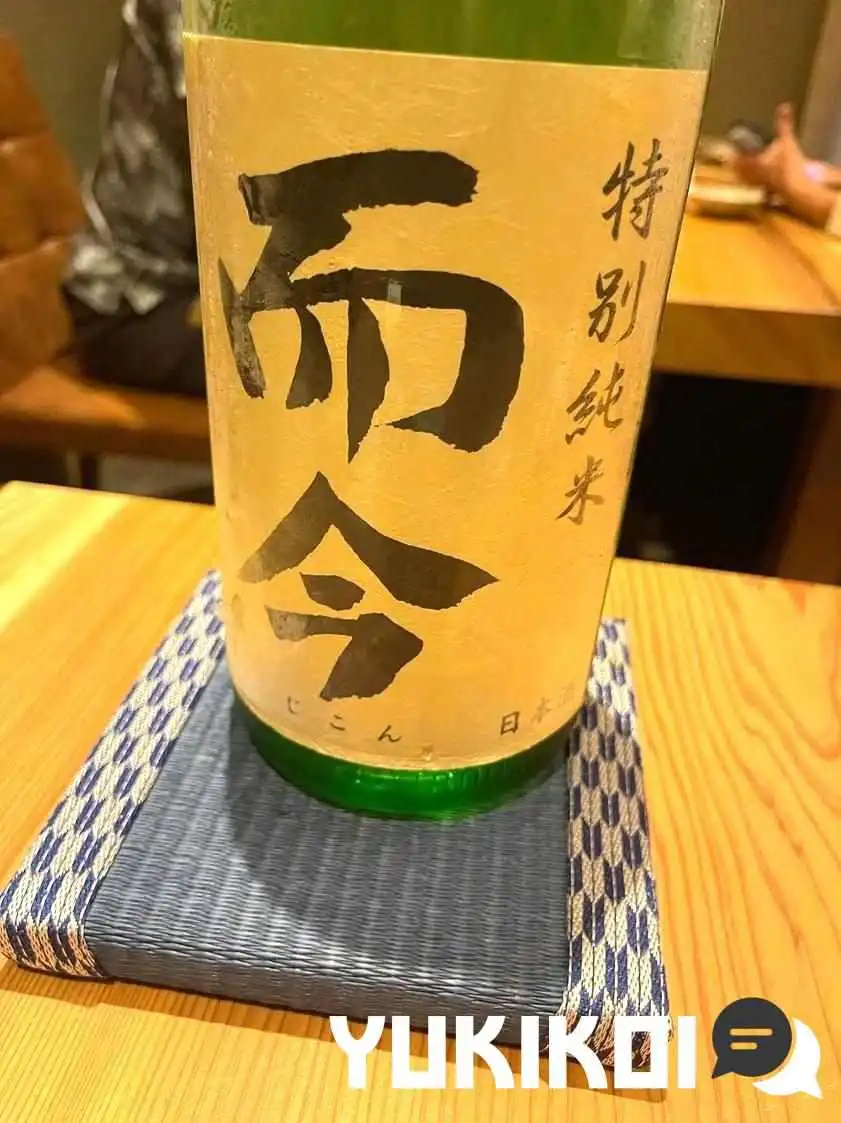 特別純米
而今
じこん
日本酒
YUKIKOI